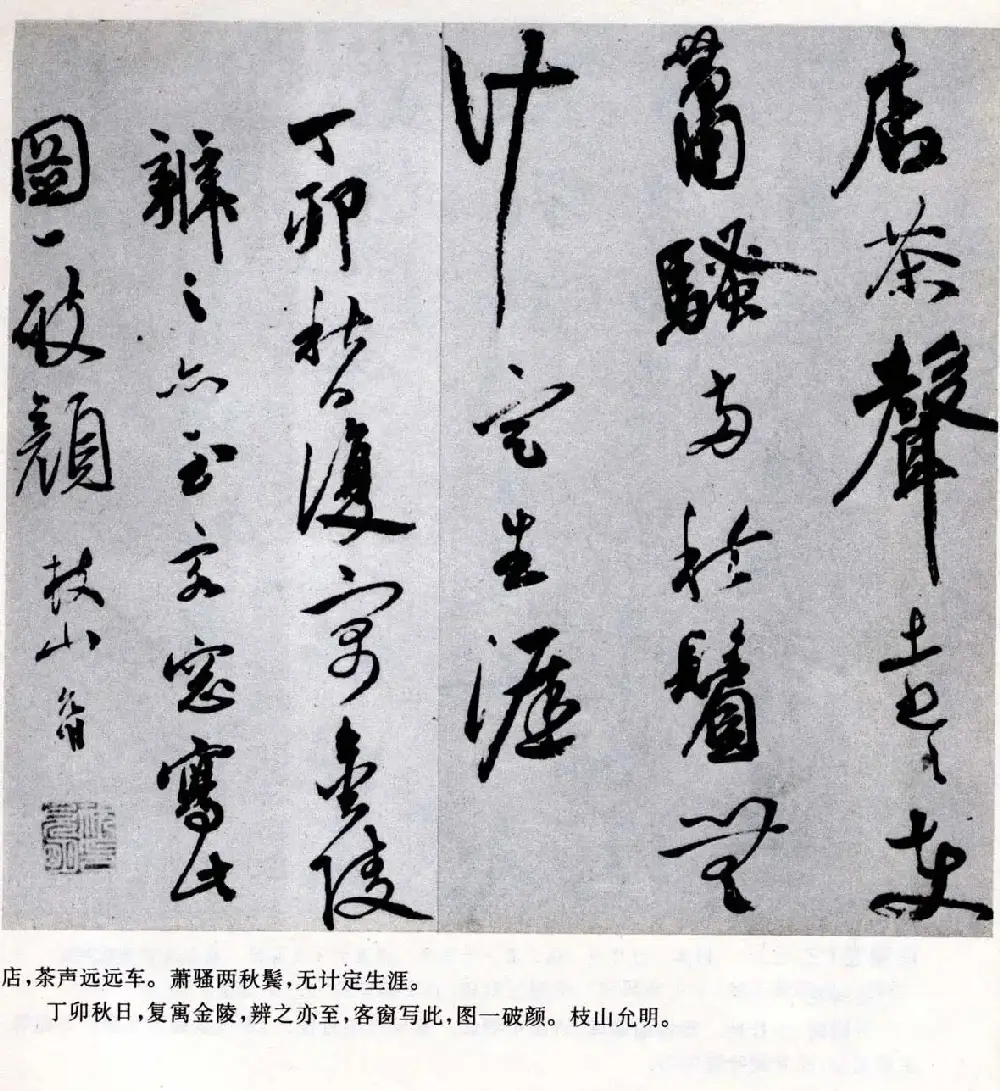 店茶聲遠〻車
蕭騷兩秋鬢無
計定生涯
丁卯秋日復寓金陵
辨之亦至客窓寫此
圖一破顏 枝山允明
店,茶声远远车。萧骚两秋鬓,无计定生涯。
丁卯秋日,复寓金陵,辨之亦至,客窗写此,图一破颜。枝山允明。